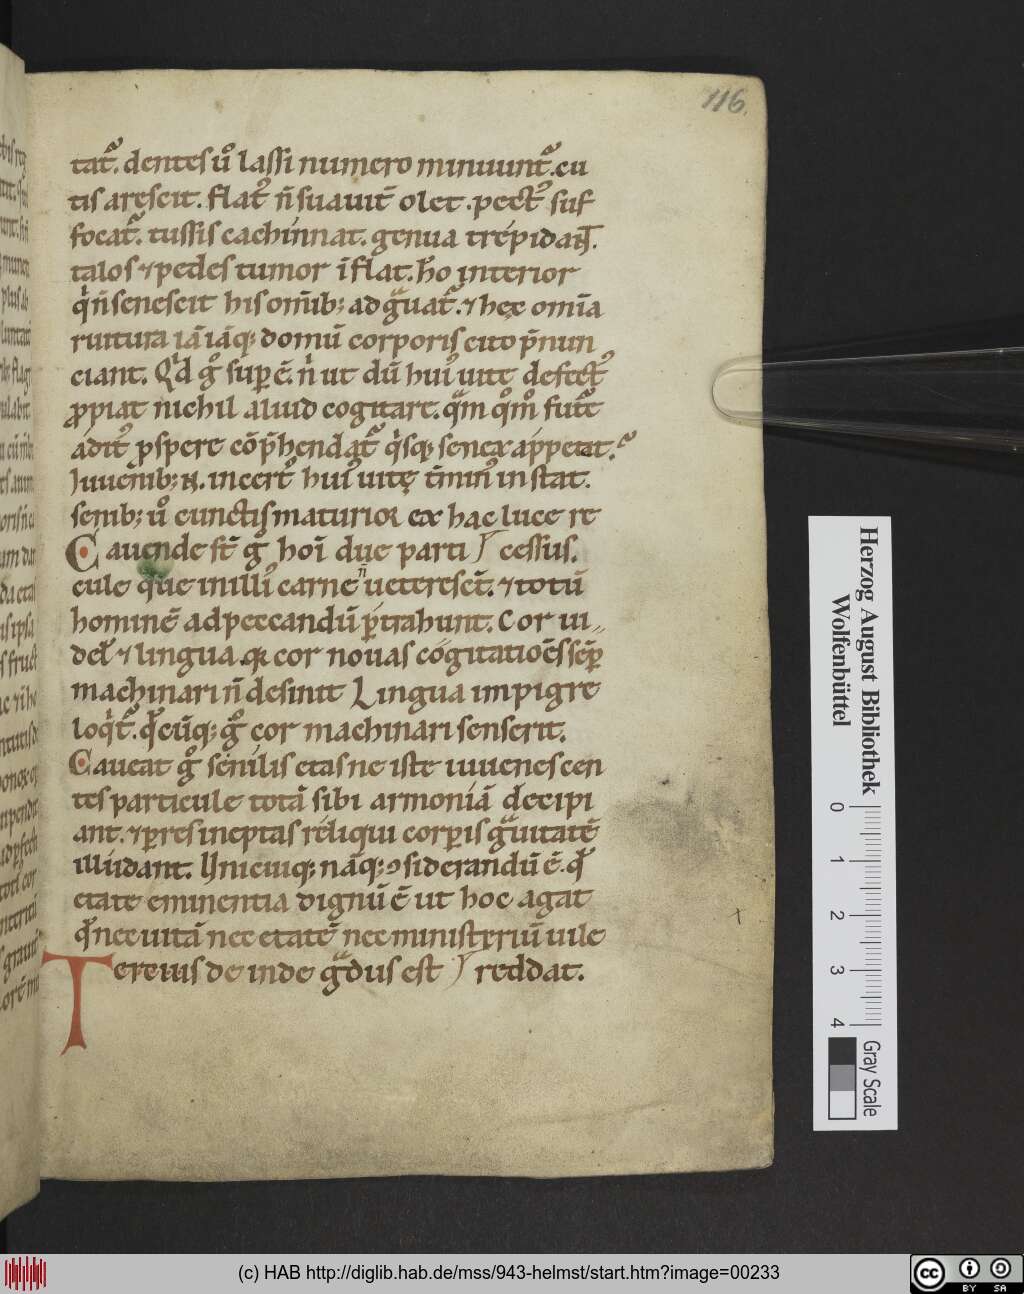 116.
tat᷑. dentes ũ lassi numero minuunt᷑. cu
tis arescit. flatꝰ ñ suauit̃ olet. pectꝰ suf
focat᷑. tussis cachinnat. genua trepidant.
talos ⁊ pedes tumor ĩflat. hõ interior
qͥ ñ senescit his om̃ib; ad gͣuat᷑. ⁊ hęc om̃ia
ruitura iã iãq; domũ corporis cito p̃nun
ciant. Qͥd gͦ suꝑ ẽ. nͥ ut dũ huiꝰ uite defectꝰ
ꝓpiat nichil aliud cogitare. qͣm qͦmͦ futr̃e
aditꝰ ꝓspere cõp̃hendat᷑ qͥsq; senex appetat.
Iuuenib; .n. incertꝰ huiꝰ uitę t̃minꝰ instat.
senib; ũ cunctis maturior ex hac luce re
Cauende st̃ gͦ hoĩ due parti cessus.
cule que in illiꝰ carne ñ ueteresct̃. ⁊ totũ
hominẽ ad peccandũ ꝑtrahunt. Cor ui
delꝫ ⁊ lingua. qr cor nouas cogitatiões seꝑ
machinari ñ desinit Lingua impigre
loqͥt᷑. qͨcũq; gͦ cor machinari senserit.
Caueat gͦ senilis etas ne iste iuuenescen
tes particule totã sibi armoniã decipi
ant. ⁊ ꝑ res ineptas reliqui corꝑis gͣuitatẽ
illudant. Unicuiq; nãq; ꝯsiderandũ ẽ. qͨ
etate eminentia dignũ ẽ ut hoc agat
qͨ nec uitã nec etatẽ nec ministeriũ uile
Tercius de inde gͣdus est reddat.
Herzog August Bibliothek
Wolfenbüttel
0 1 2 3 4
Gray Scale
(c) HAB http://diglib.hab.de/mss/943-helmst/start.htm?image=00233
cc BY SA